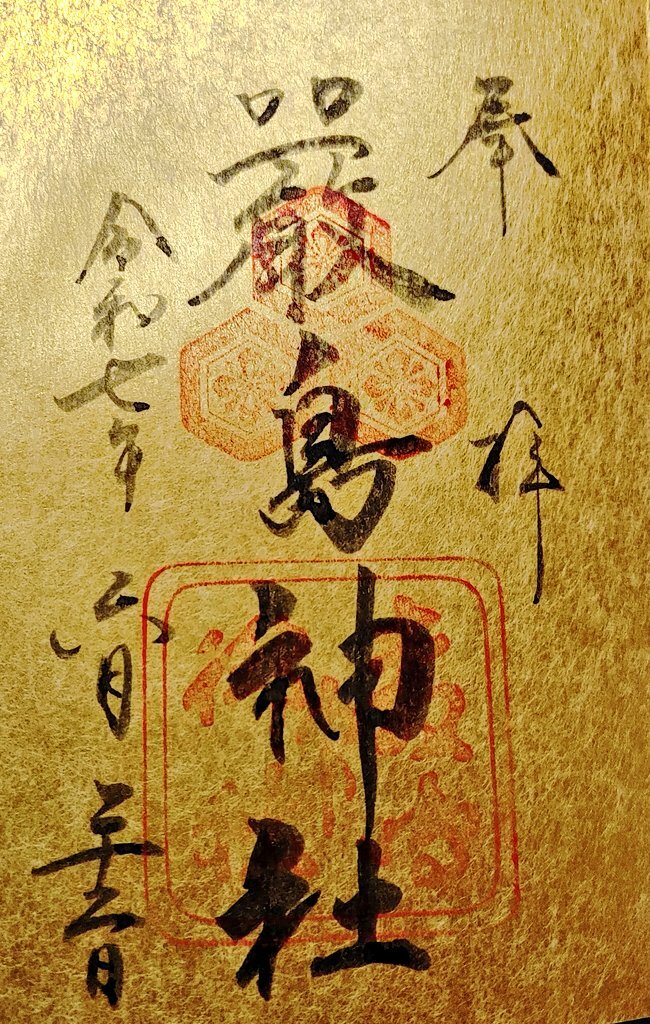 奉拝
嚴島神社
令和七年六月二十三日